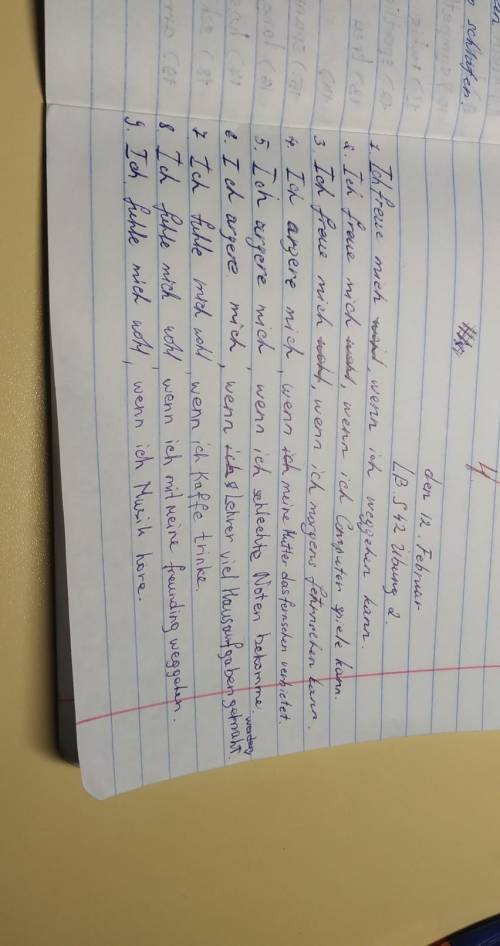 schlafen.
4
den 12. Februar
LB. S 42 Übung 2.
1. Ich freue mich, wenn ich weggehen kann.
2. Ich freue mich, wenn ich Computer spiele kann.
3. Ich freue mich, wenn ich morgens fehrnsehen kann.
4. Ich argere mich, wenn ich meine Mutter das fernsehen verbietet.
5. Ich argere mich, wenn ich schlechte Noten bekomme.
6. Ich argere mich, wenn Lehrer viel Hausaufgaben gemaht werden.
7 Ich fuhle mich wohl, wenn ich Kaffe trinke.
8 Ich fuhle mich wohl, wenn ich mit meine freunding weggehen.
9. Ich fuhle mich wohl, wenn ich Musik hore.